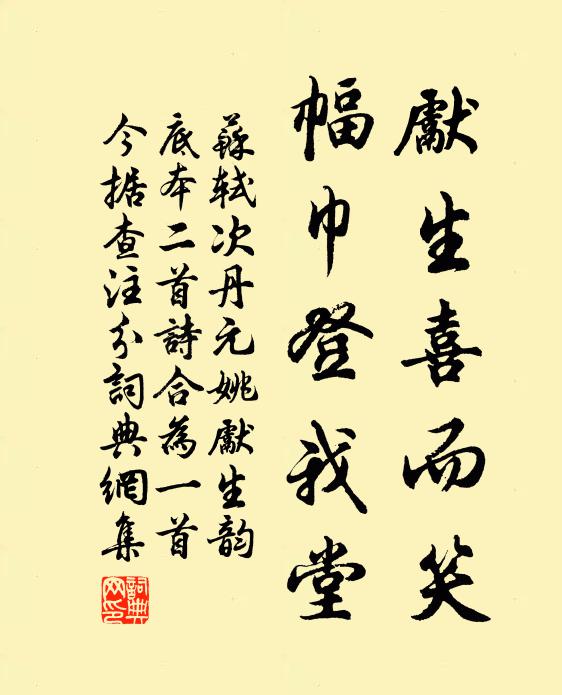 獻生喜而笑
幅巾登我堂
蘇軾次丹元姚獻生韵
底本二首詩合為一首
今据查注分詞典網集
詞典网印